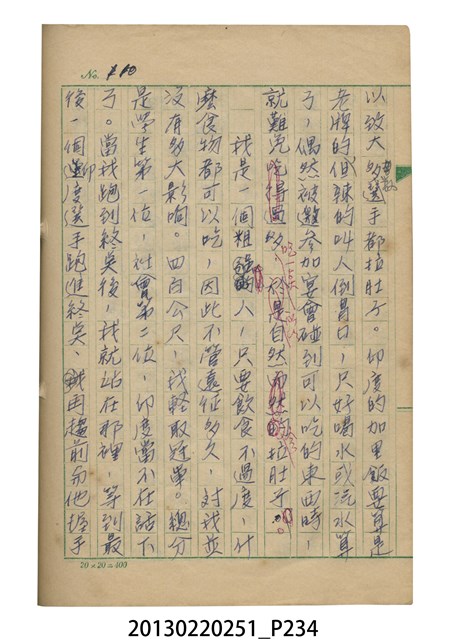 No. 210
以致大多數選手都拉肚子。印度的加里飯要算是
老牌的但辣的叫人倒胃口，只好喝水或汽水算
了，偶然被邀參加宴會碰到可以吃的東西時，
就難免吃得過多，於是自然而然的拉肚子。
我是一個粗人，只要飲食不過度，什
麼食物都可以吃，因此不管遠征多久，對我並
沒有多大影响。四百公尺，我輕取冠軍。總分
是學生第一位，社會第二位，印度當不在話下
了。當我跑到終點後，我就站在那裡，等到最
後一個印度選手跑進終點、我再趨前与他握手
20×20=400
20130220251_P234